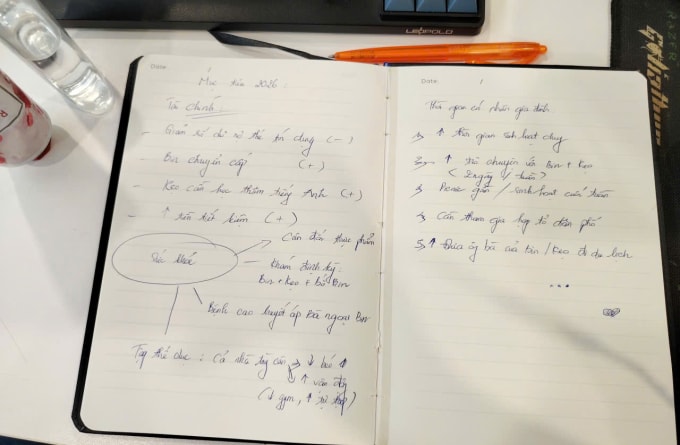 LEOPOLD
Date
Mục tiêu 2026:
Tài chính:
- Giảm số dư nợ thẻ tín dụng (-)
- Bin chuyển cấp (+)
- Kẹo cần học thêm tiếng Anh (+)
- ↑ tiền tiết kiệm (+)
Sức khoẻ
Cân đối thực phẩm
Khám định kỳ:
Bin + Kẹo + bố Bin
Bệnh cao huyết áp Bà ngoại Bin
Tập thể dục: Cả nhà
↑ vận động
(↓ gym, ↑
Date
Thời gian cá nhân gia đình
1, ↑ thời gian sinh hoạt chung
2, ↑ trò chuyện với Bin + Kẹo
(2 ngày / tuần)
3, / sinh hoạt cuối tuần
4, Cần tham gia họp tổ dân phố
5, ↑ Đưa ông bà của Bin / Kẹo đi du lịch
...